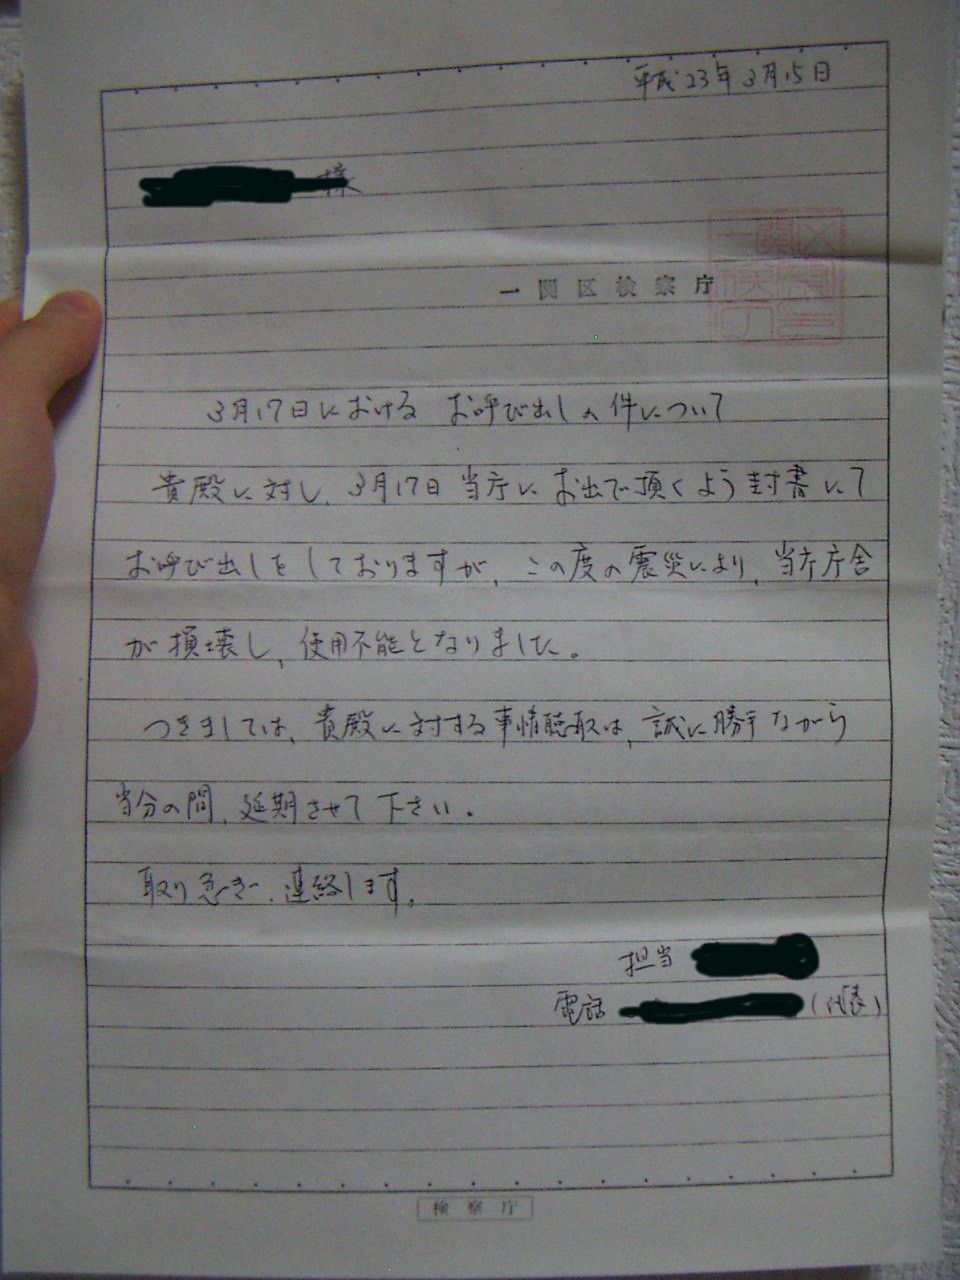 平成23年3月15日
様
一関区検察庁
3月17日におけるお呼び出しの件について
貴殿に対し、3月17日当庁にお出で頂くよう封書にて
お呼び出しをしておりますが、この度の震災により、当庁庁舎
が損壊し、使用不能となりました。
つきましては、貴殿に対する事情聴取は、誠に勝手ながら
当分の間、延期させて下さい。
取り急ぎ、連絡します。
担当
電話 (代表)
検察庁